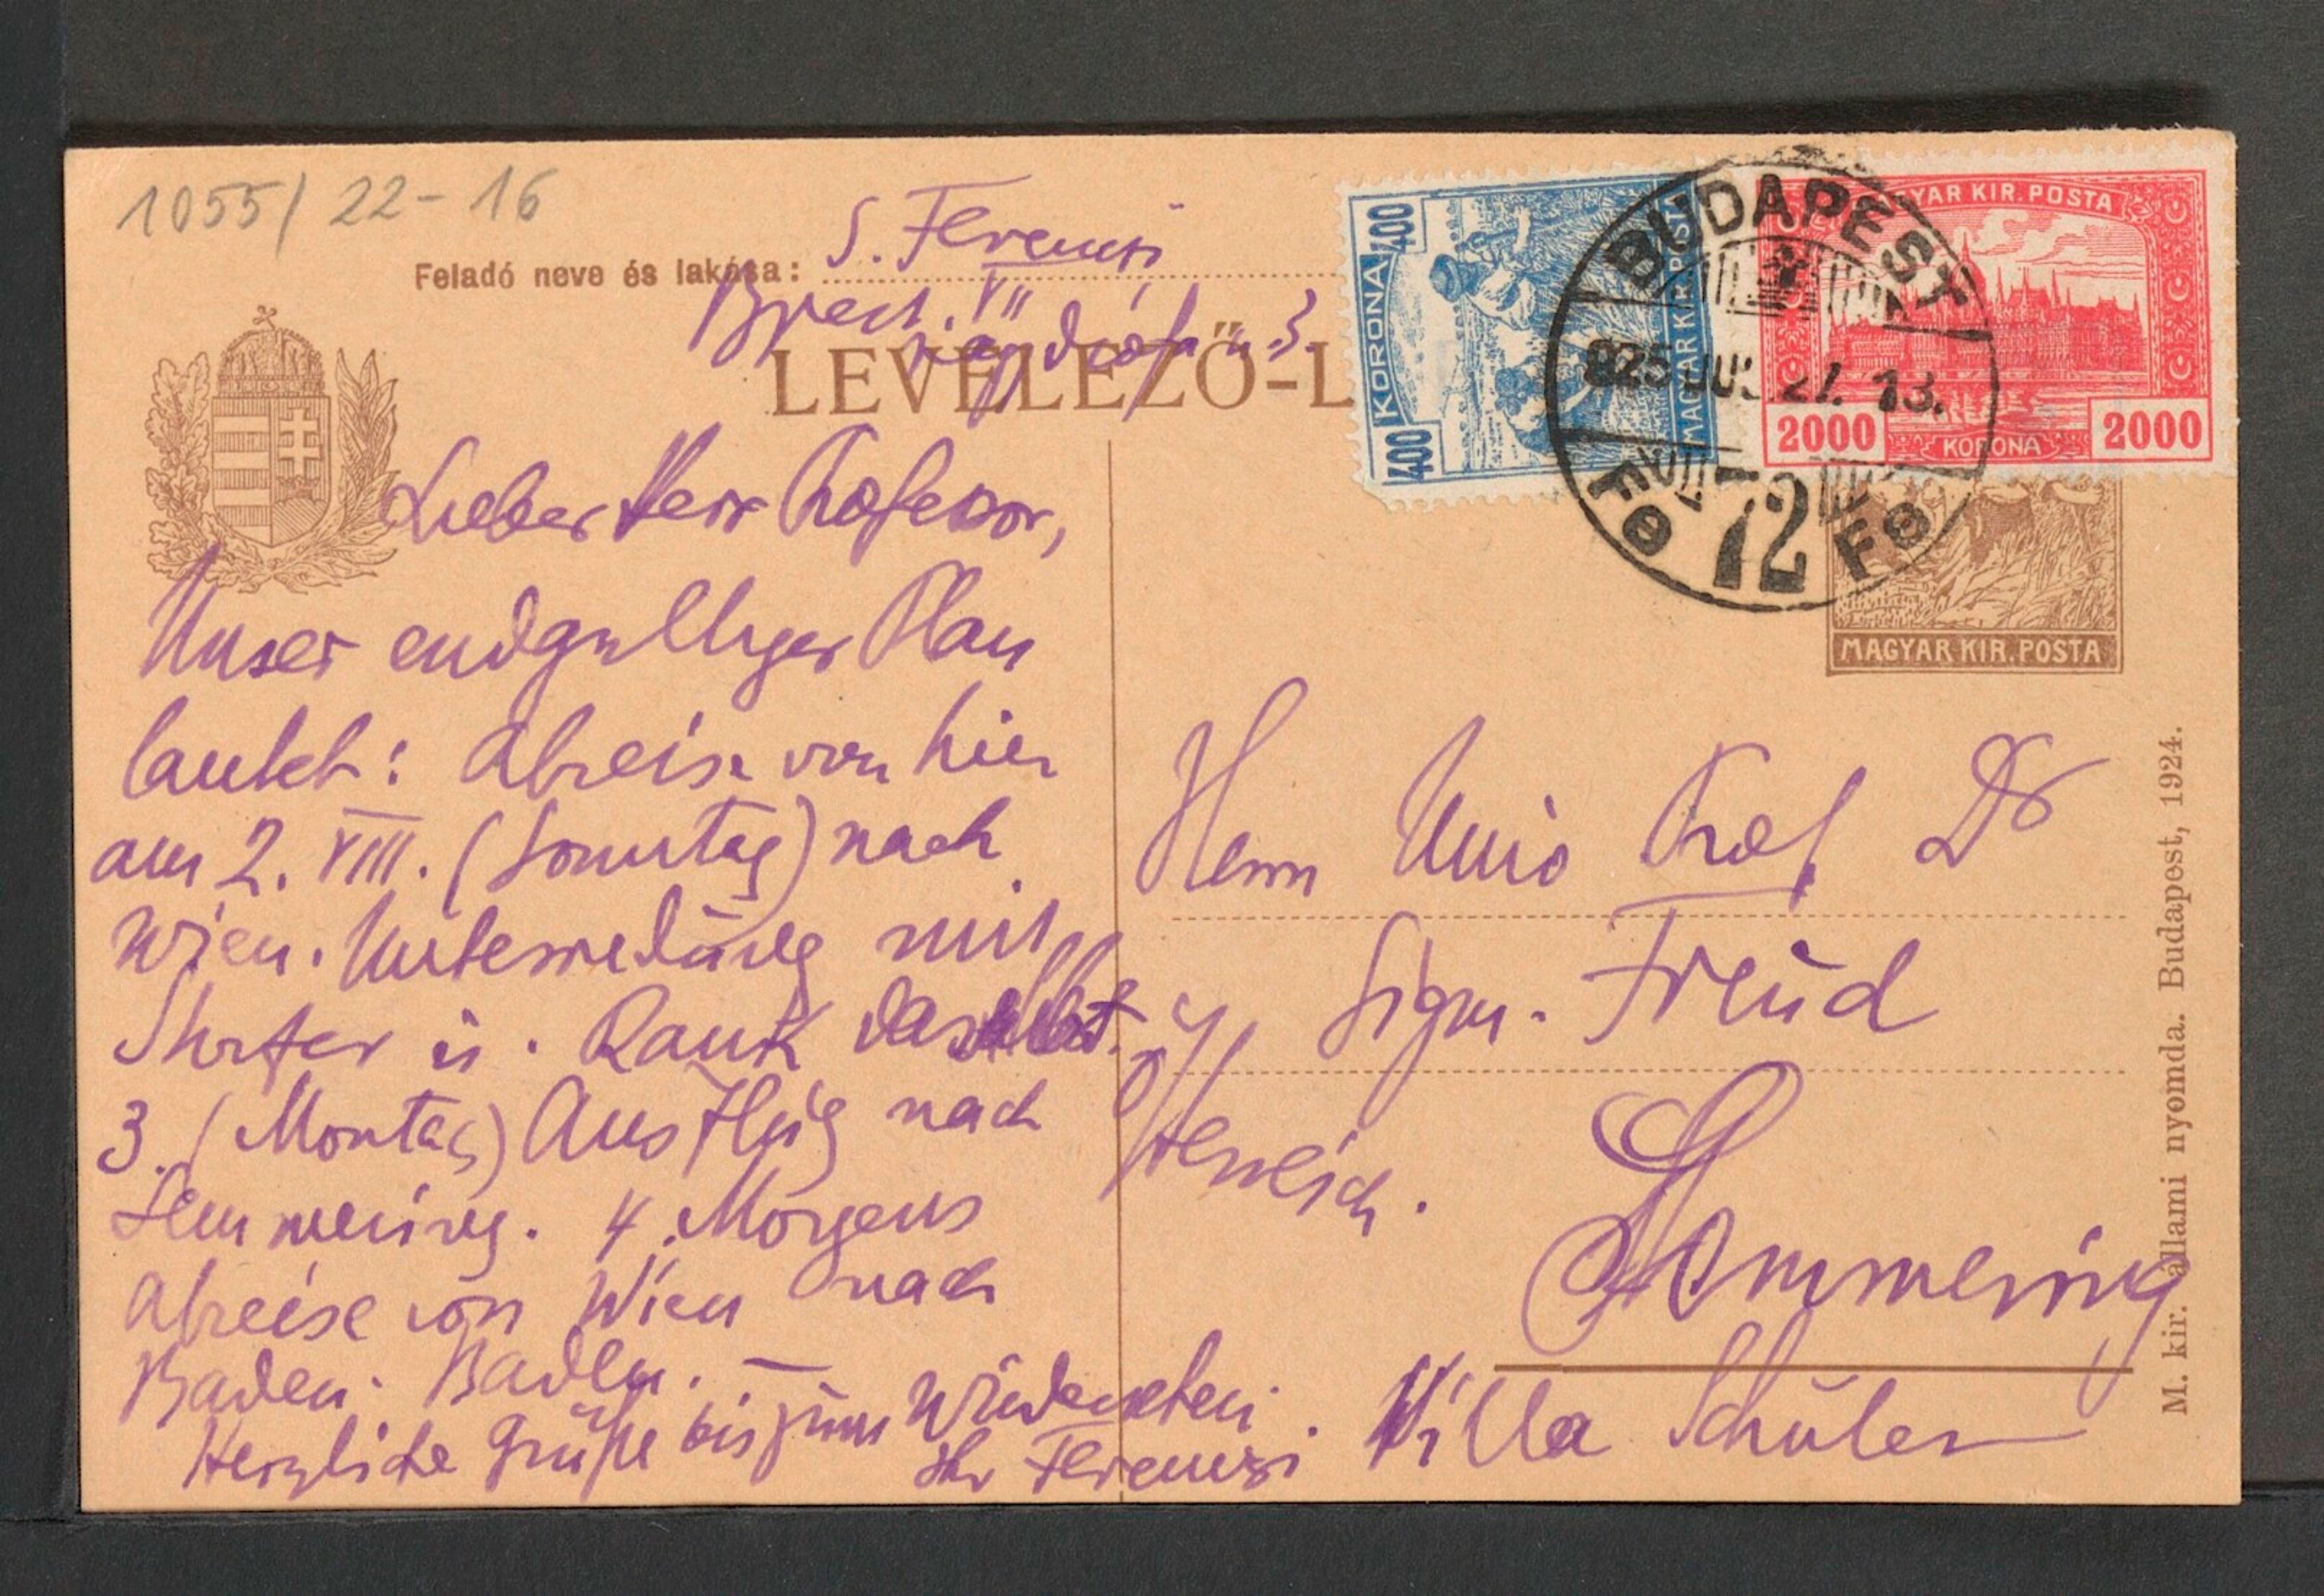 1055/22-16
Feladó neve és lakása: S. Ferenczi
Bpest. VII
Nagydiófa u. 3.
LEVELEZŐ-L
400 KORONA 400
MAGYAR KIR. POSTA
MAGYAR KIR. POSTA
2000 KORONA 2000
BUDAPEST
925 JUL 27. 13.
Fő 72 Fő
MAGYAR KIR. POSTA
Lieber Herr Professor,
Unser endgültiger Plan
lautet: Abreise von hier
am 2. VIII. (Sonntag) nach
Wien. Unterredung mit
Storfer u. Rank daselbst.
3. (Montag) Ausflug nach
Semmering. 4. Morgens
Abreise von Wien nach
Baden-Baden. —
Herzliche Grüße bis zum Wiedersehen.
Ihr Ferenczi
Herrn Univ Prof Dr
Sigm. Freud
Österreich.
Semmering
Villa Schüler
M. kir. állami nyomda. Budapest, 1924.